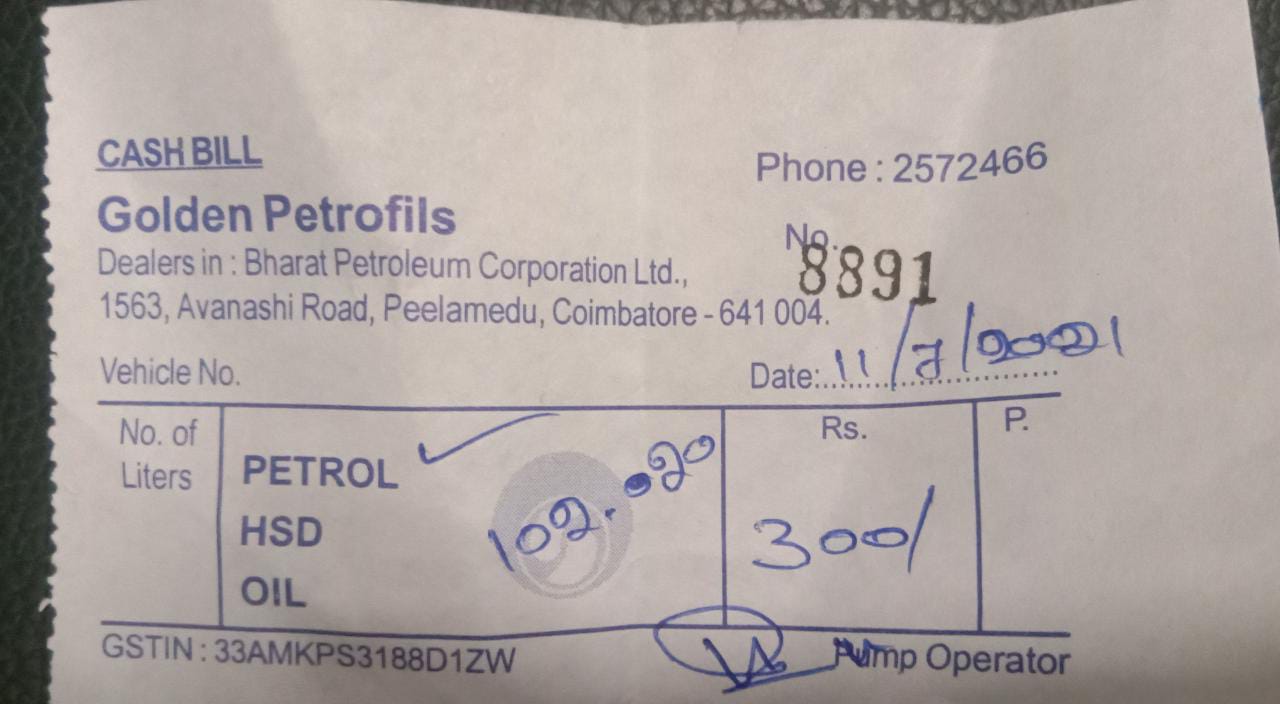 CASH BILL
Phone : 2572466
Golden Petrofils
No. 8891
Dealers in : Bharat Petroleum Corporation Ltd.,
1563, Avanashi Road, Peelamedu, Coimbatore - 641 004.
Vehicle No.
Date: 11/7/2021
No. of Liters
PETROL ✓
HSD
OIL
102. 20
Rs.
300/
P.
GSTIN : 33AMKPS3188D1ZW
Pump Operator